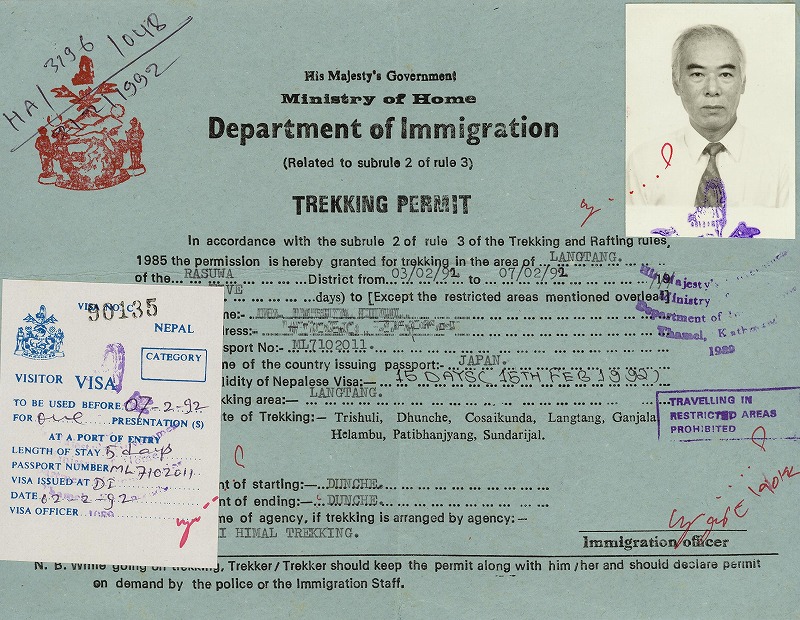 HA/ 3796 / 1048
1992
His Majesty's Government
Ministry of Home
Department of Immigration
(Related to subrule 2 of rule 3)
TREKKING PERMIT
In accordance with the subrule 2 of rule 3 of the Trekking and Rafting rules,
1985 the permission is hereby granted for trekking in the area of LANGTANG.
of the RASUWA District from 03/02/92 to 07/02/92
VE days) to [Except the restricted areas mentioned overleaf
me:-
ress:-
sport No:- ML7102011.
me of the country issuing passport:- JAPAN.
lidity of Nepalese Visa:- 15 DAYS( 15TH FEB 1992)
king area:- LANGTANG.
te of Trekking:- Trishuli, Dhunche, Cosaikunda, Langtang, Ganjala
Helambu, Patibhanjyang, Sundarijal.
nt of starting:- DUNCHE.
nt of ending:- DUNCHE.
me of agency, if trekking is arranged by agency:-
I HIMAL TREKKING.
Immigration officer
N. B. While going on trekking, Trekker/Trekker should keep the permit along with him/her and should declare permit
on demand by the police or the Immigration Staff.
His Majesty's
Ministry
Department of
Thamel, Kathm
1989
TRAVELLING IN
RESTRICTED AREAS
PROHIBITED
VISA NO. 90135
NEPAL
CATEGORY
VISITOR VISA
TO BE USED BEFORE 07-2-92
FOR one PRESENTATION (S)
AT A PORT OF ENTRY
LENGTH OF STAY 5 days
PASSPORT NUMBER ML7102011
VISA ISSUED AT DI
DATE 02-2-92
VISA OFFICER